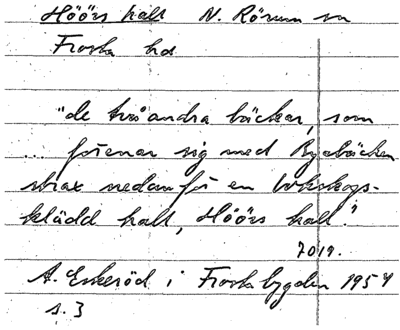 Höörs hall N. Rörum sn
Frosta hd
"de två andra bäckar, som
... förenar sig med Byabäcken
strax nedanför en bokskogs-
klädd hall, Höörs hall."
7019.
A. Eskeröd i Frostabygden 1954
s. 3